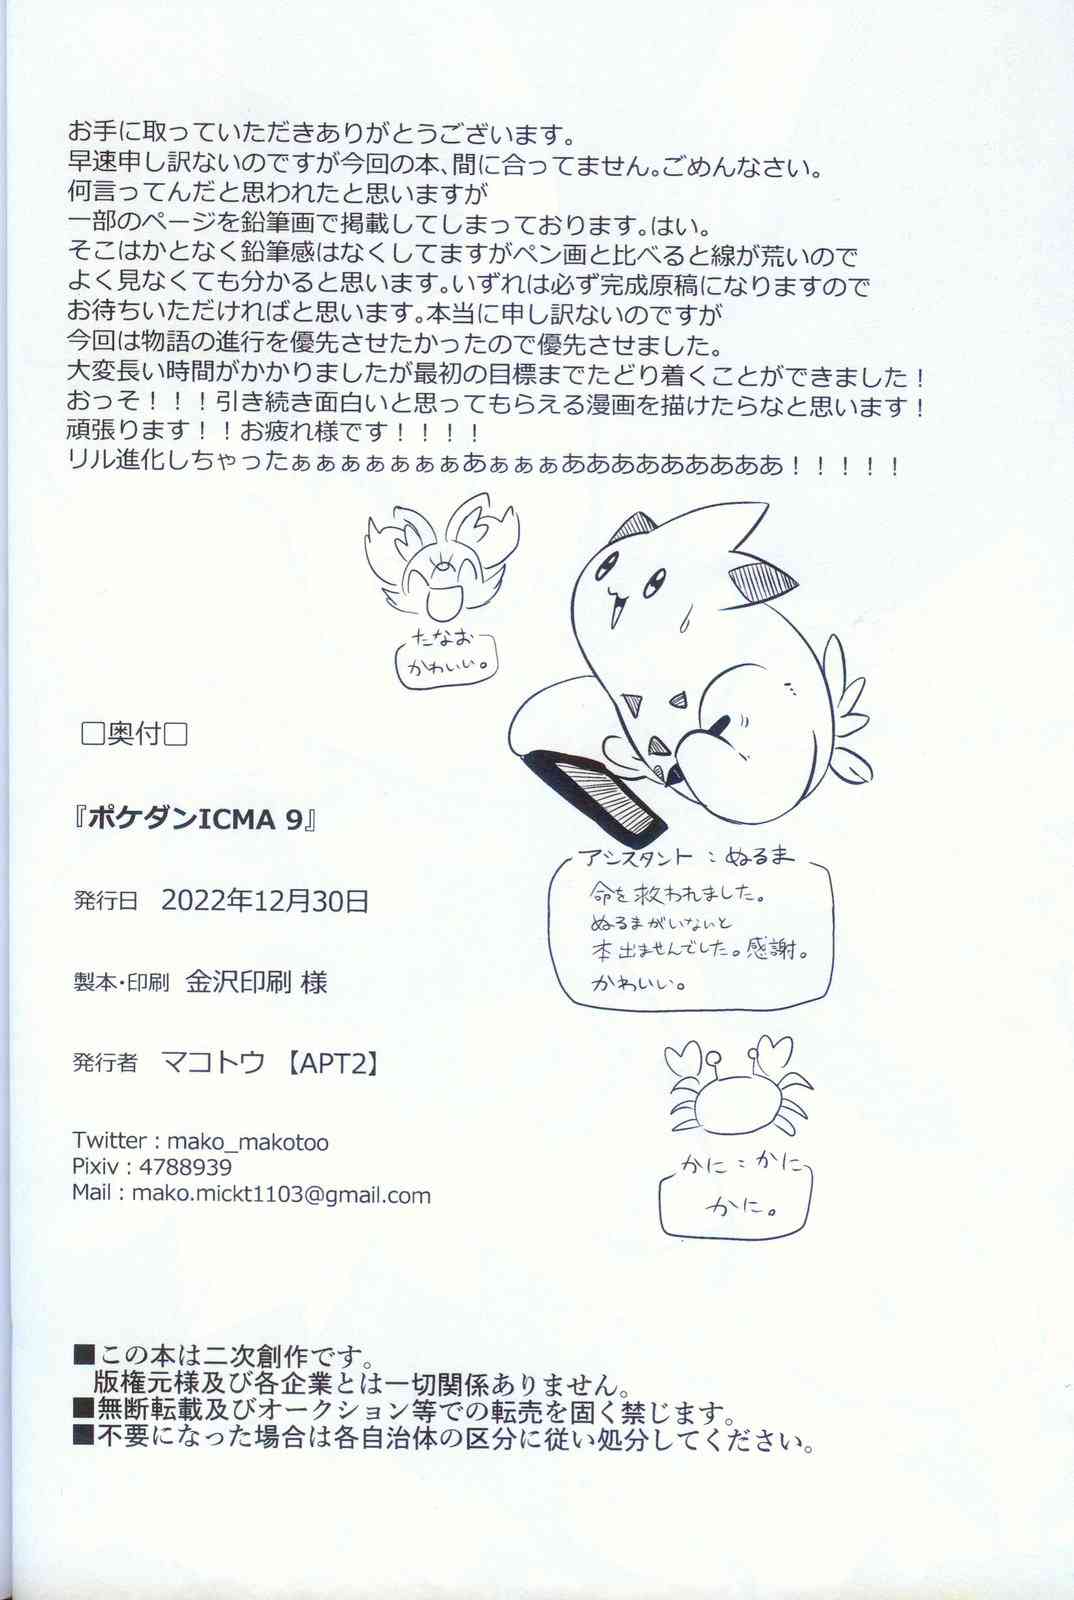 お手に取っていただきありがとうございます。
早速申し訳ないのですが今回の本、間に合ってません。ごめんなさい。
何言ってんだと思われたと思いますが
一部のページを鉛筆画で掲載してしまっております。はい。
そこはかとなく鉛筆感はなくしてますがペン画と比べると線が荒いので
よく見なくても分かると思います。いずれは必ず完成原稿になりますので
お待ちいただければと思います。本当に申し訳ないのですが
今回は物語の進行を優先させたかったので優先させました。
大変長い時間がかかりましたが最初の目標までたどり着くことができました！
おっそ！！！引き続き面白いと思ってもらえる漫画を描けたらなと思います！
頑張ります！！お疲れ様です！！！！
リル進化しちゃったぁぁぁぁぁぁぁあぁぁぁあああああああああ！！！！！
たなお
かわいい。
□奥付□
『ポケダンICMA 9』
発行日 2022年12月30日
製本・印刷 金沢印刷 様
発行者 マコトウ【APT2】
Twitter : mako_makotoo
Pixiv : 4788939
Mail : mako.mickt1103@gmail.com
アシスタント：ぬるま
命を救われました。
ぬるまがいないと
本出ませんでした。感謝。
かわいい。
かに：かに
かに。
■この本は二次創作です。
版権元様及び各企業とは一切関係ありません。
■無断転載及びオークション等での転売を固く禁じます。
■不要になった場合は各自治体の区分に従い処分してください。